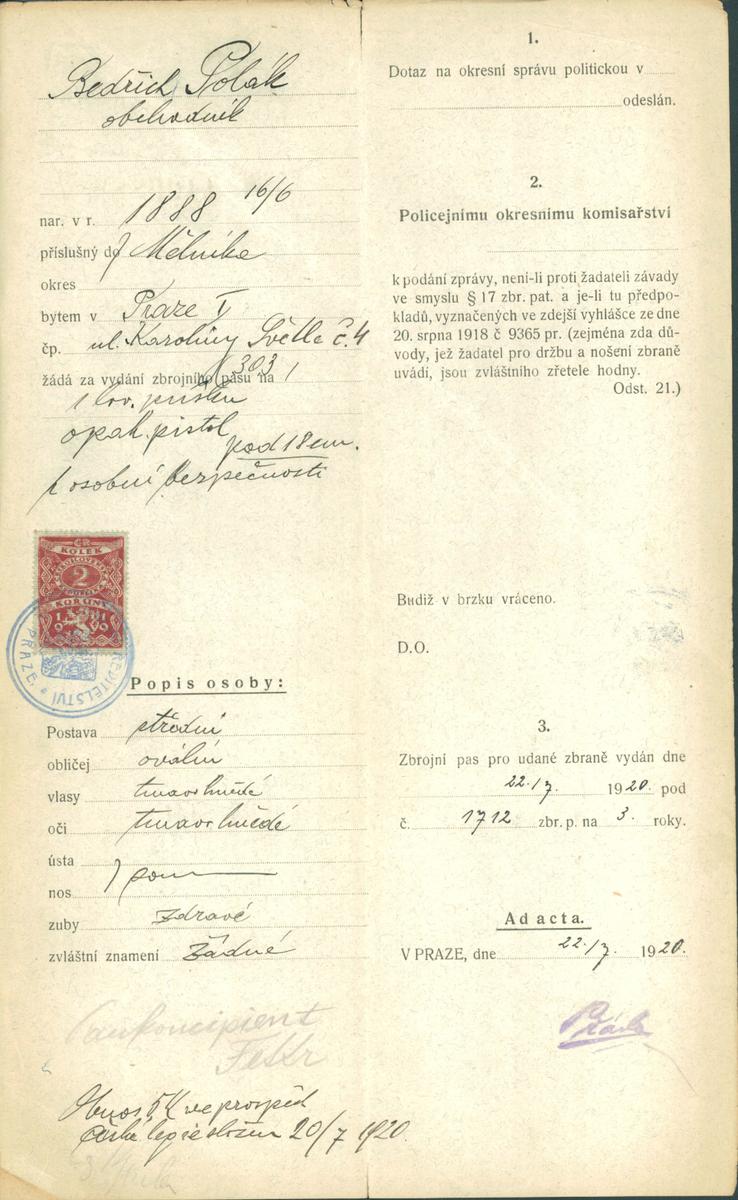 Bedřich Polák
obchodník
nar. v r. 1888 16/6
příslušný do Mělníka
okres
bytem v Praze I
čp. ul. Karoliny Světlé č. 4
303
žádá za vydání zbrojního pasu na 1
1 lov. pušku
opak. pistol
pod 18 cm.
k osobní bezpečnosti
ČR
KOLEK
2
KORUNY
1919
PRAZE.
ŘEDITELSTVÍ
Popis osoby:
Postava střední
obličej oválný
vlasy tmavohnědé
oči tmavohnědé
ústa
nos
zuby zdravé
zvláštní znamení žádné
Obnos 5 K ve prospěch
České legie složen 20/7 1920.
1.
Dotaz na okresní správu politickou v
odeslán.
2.
Policejnímu okresnímu komisařství
k podání zprávy, není-li proti žadateli závady
ve smyslu § 17 zbr. pat. a je-li tu předpo-
kladů, vyznačených ve zdejší vyhlášce ze dne
20. srpna 1918 č 9365 pr. (zejména zda dů-
vody, jež žadatel pro držbu a nošení zbraně
uvádí, jsou zvláštního zřetele hodny.
Odst. 21.)
Budiž v brzku vráceno.
D.O.
3.
Zbrojní pas pro udané zbraně vydán dne
22./7. 1920. pod
č. 1712 zbr. p. na 3. roky.
Ad acta.
V PRAZE, dne 22./7. 1920.